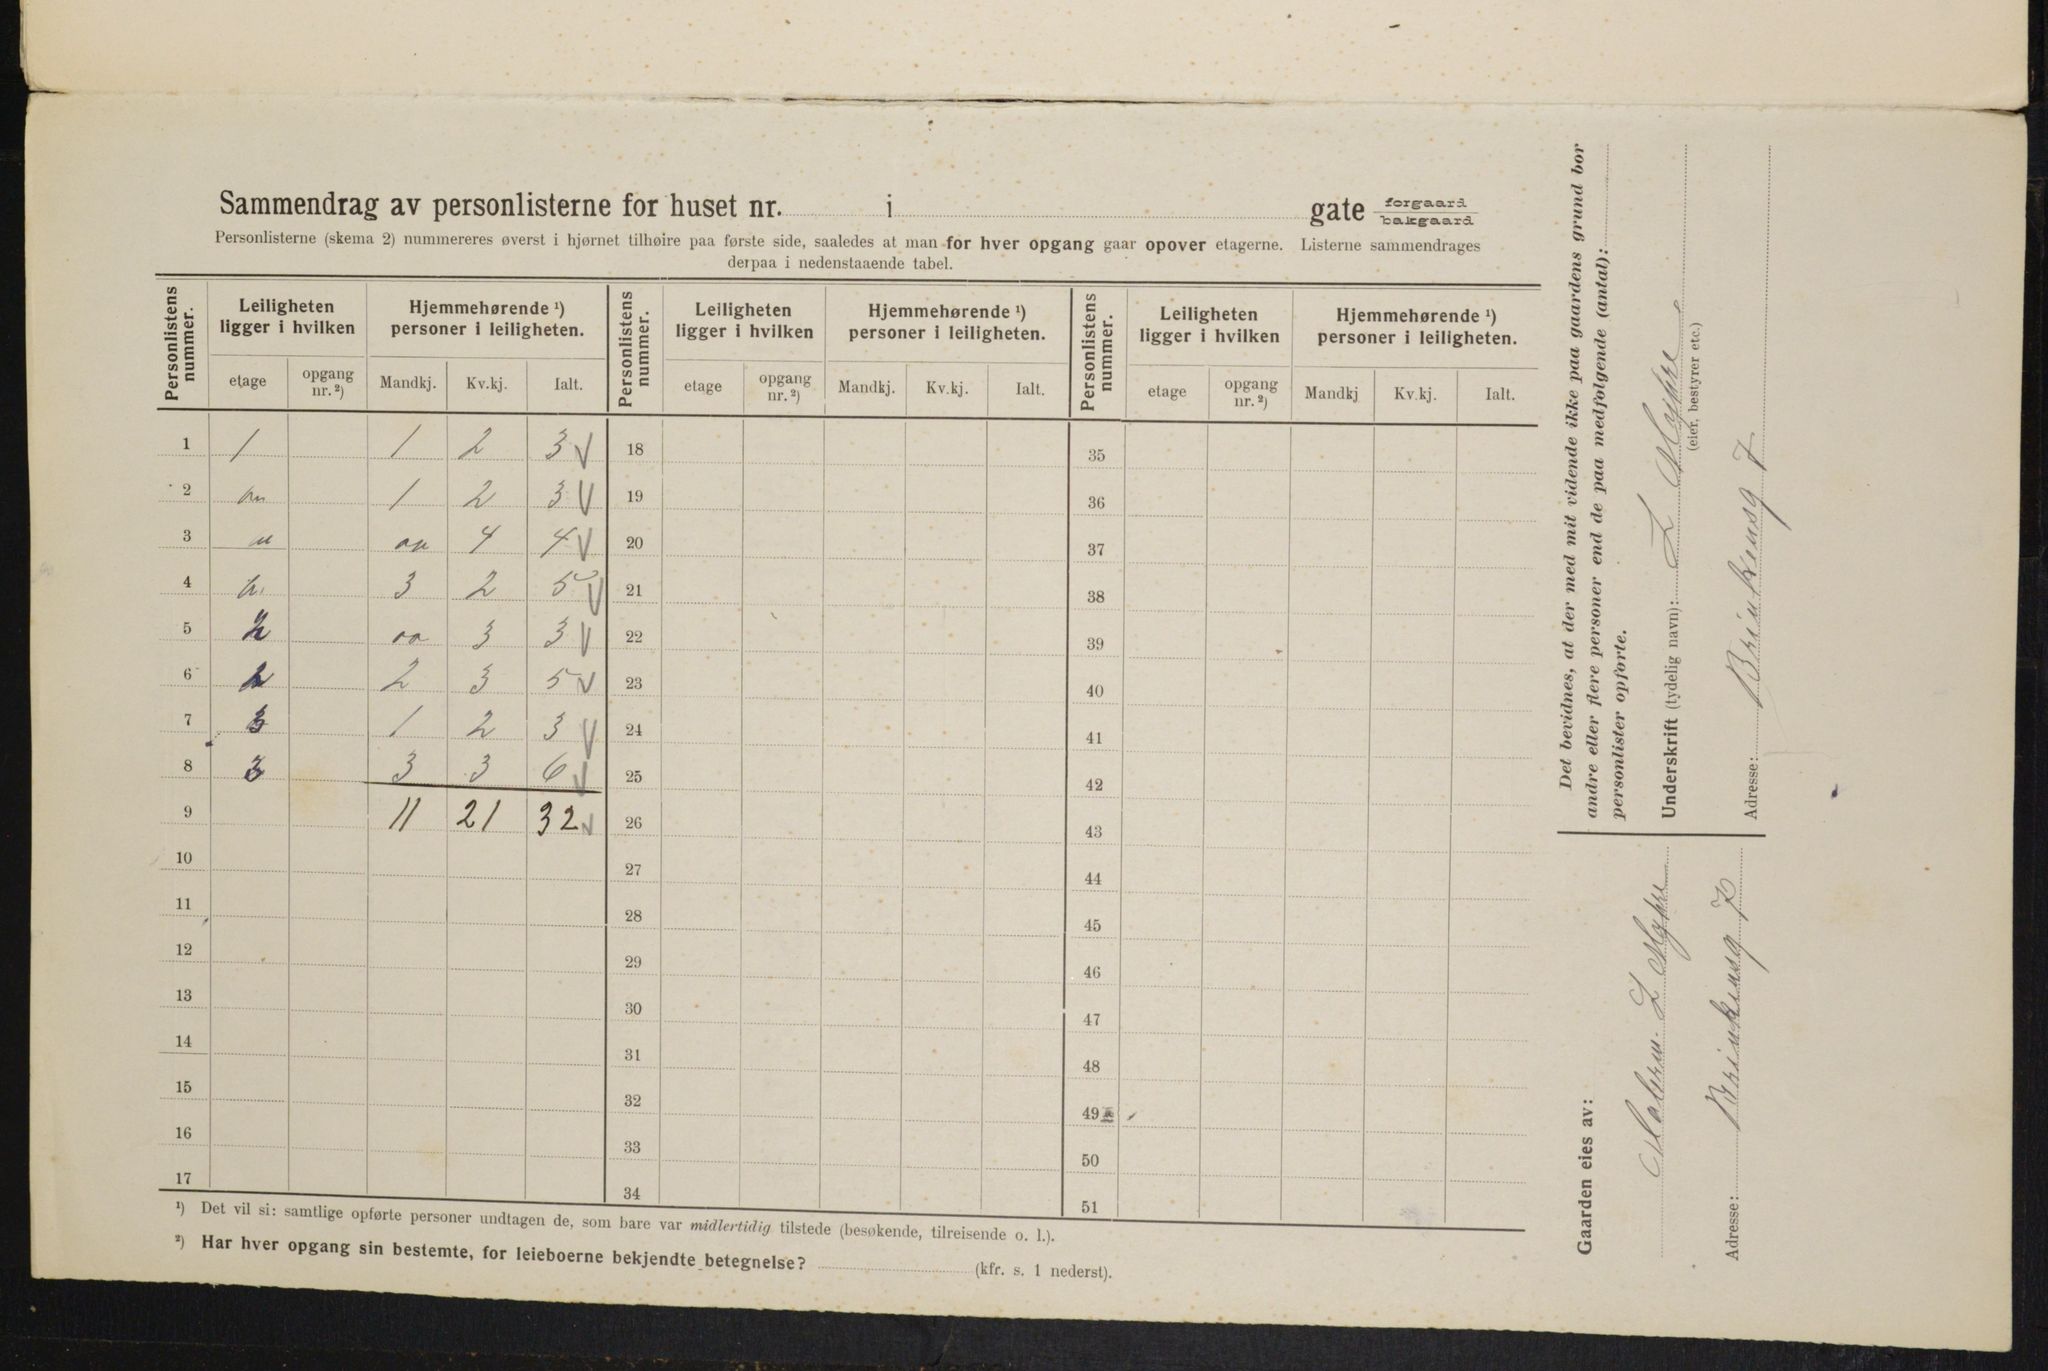 Sammendrag av personlisterne for huset nr. i gate forgaard bakgaard
Personlisterne (skema 2) nummereres øverst i hjørnet tilhøire paa første side, saaledes at man for hver opgang gaar opover etagerne. Listerne sammendrages
derpaa i nedenstaaende tabel.
Personlistens nummer. Leiligheten ligger i hvilken Hjemmehørende ¹) personer i leiligheten. Personlistens nummer. Leiligheten ligger i hvilken Hjemmehørende ¹) personer i leiligheten. Personlistens nummer. Leiligheten ligger i hvilken Hjemmehørende ¹) personer i leiligheten.
etage opgang nr. ²) Mandkj. Kv.kj. Ialt. etage opgang nr. ²) Mandkj. Kv.kj. Ialt. etage opgang nr. ²) Mandkj Kv.kj. Ialt.
1 1 1 2 3 18 35
2 1 2 3 19 36
3 4 4 20 37
4 3 2 5 21 38
5 2 3 3 22 39
6 2 2 3 5 23 40
7 3 1 2 3 24 41
8 3 3 3 6 25 42
9 11 21 32 26 43
10 27 44
11 28 45
12 29 46
13 30 47
14 31 48
15 32 49
16 33 50
17 34 51
¹) Det vil si: samtlige opførte personer undtagen de, som bare var midlertidig tilstede (besøkende, tilreisende o. l.).
²) Har hver opgang sin bestemte, for leieboerne bekjendte betegnelse? (kfr. s. 1 nederst).
Det bevidnes, at der med mit vidende ikke paa gaardens grund bor
andre eller flere personer end de paa medfølgende (antal):
personlister opførte.
Underskrift (tydelig navn): L Myhre
(eier, bestyrer etc.)
Adresse: Brinkensg 7
Gaarden eies av:
L Myhre
Adresse: Brinkensg 7